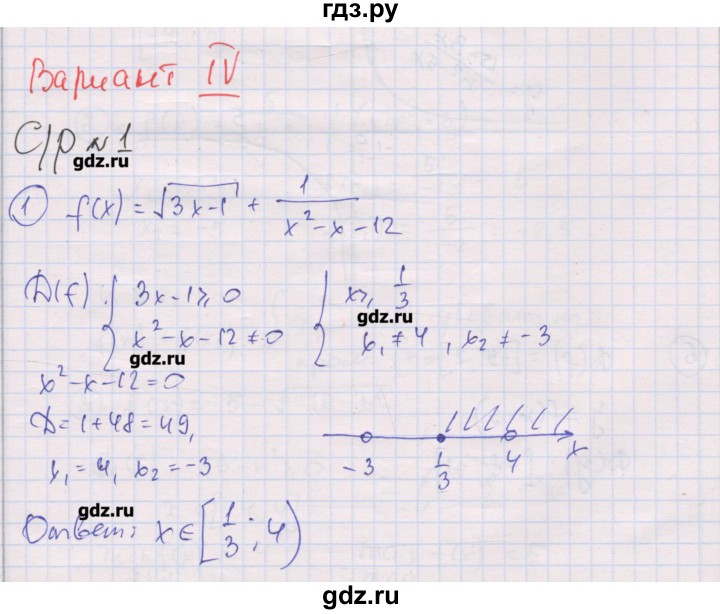 гдз.ру
Вариант IV
С/р №1
gdz.ru
1 f(x) = √3x-1 + 1/(x²-x-12)
D(f) { 3x-1 ⩾ 0 { x ⩾ 1/3
gdz.ru
x²-x-12 ≠ 0 x₁ ≠ 4 , x₂ ≠ -3
gdz.ru
x²-x-12=0
D=1+48=49,
x₁=4, x₂=-3
-3 1/3 4 x
gdz.ru
Ответ: x∈[1/3 ; 4)
gdz.ru